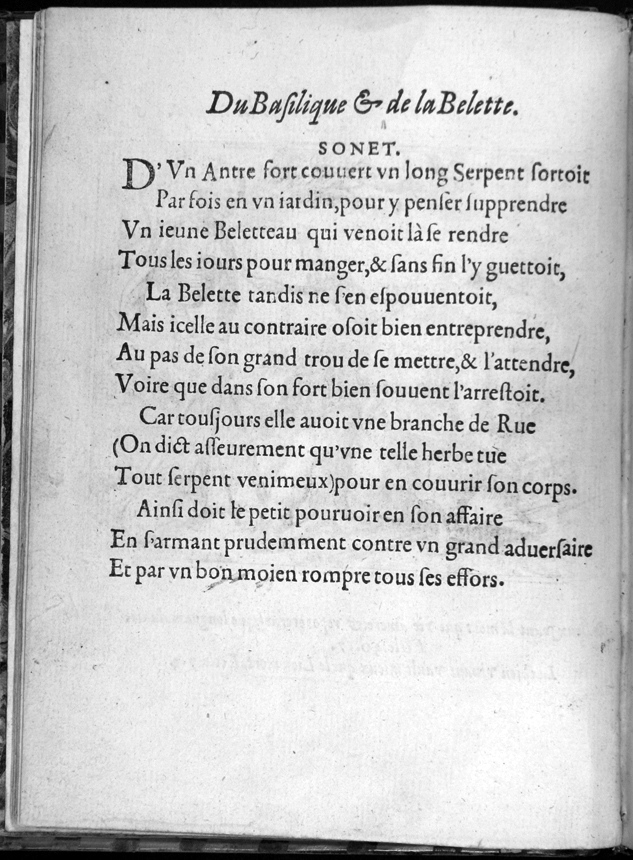 Du Baſilique & de la Belette.
SONET.
D'Vn Antre fort couuert vn long Serpent ſortoit
Par fois en vn iardin, pour y penſer ſupprendre
Vn ieune Beletteau qui venoit là ſe rendre
Tous les iours pour manger, & ſans fin l'y guettoit,
La Belette tandis ne ſ'en eſpouuentoit,
Mais icelle au contraire oſoit bien entreprendre,
Au pas de ſon grand trou de ſe mettre, & l'attendre,
Voire que dans ſon fort bien ſouuent l'arreſtoit.
Car touſjours elle auoit vne branche de Rue
(On dict aſſeurement qu'vne telle herbe tüe
Tout ſerpent venimeux) pour en couurir ſon corps.
Ainſi doit le petit pouruoir en ſon affaire
En ſarmant prudemment contre vn grand aduerſaire
Et par vn bon moien rompre tous ſes effors.